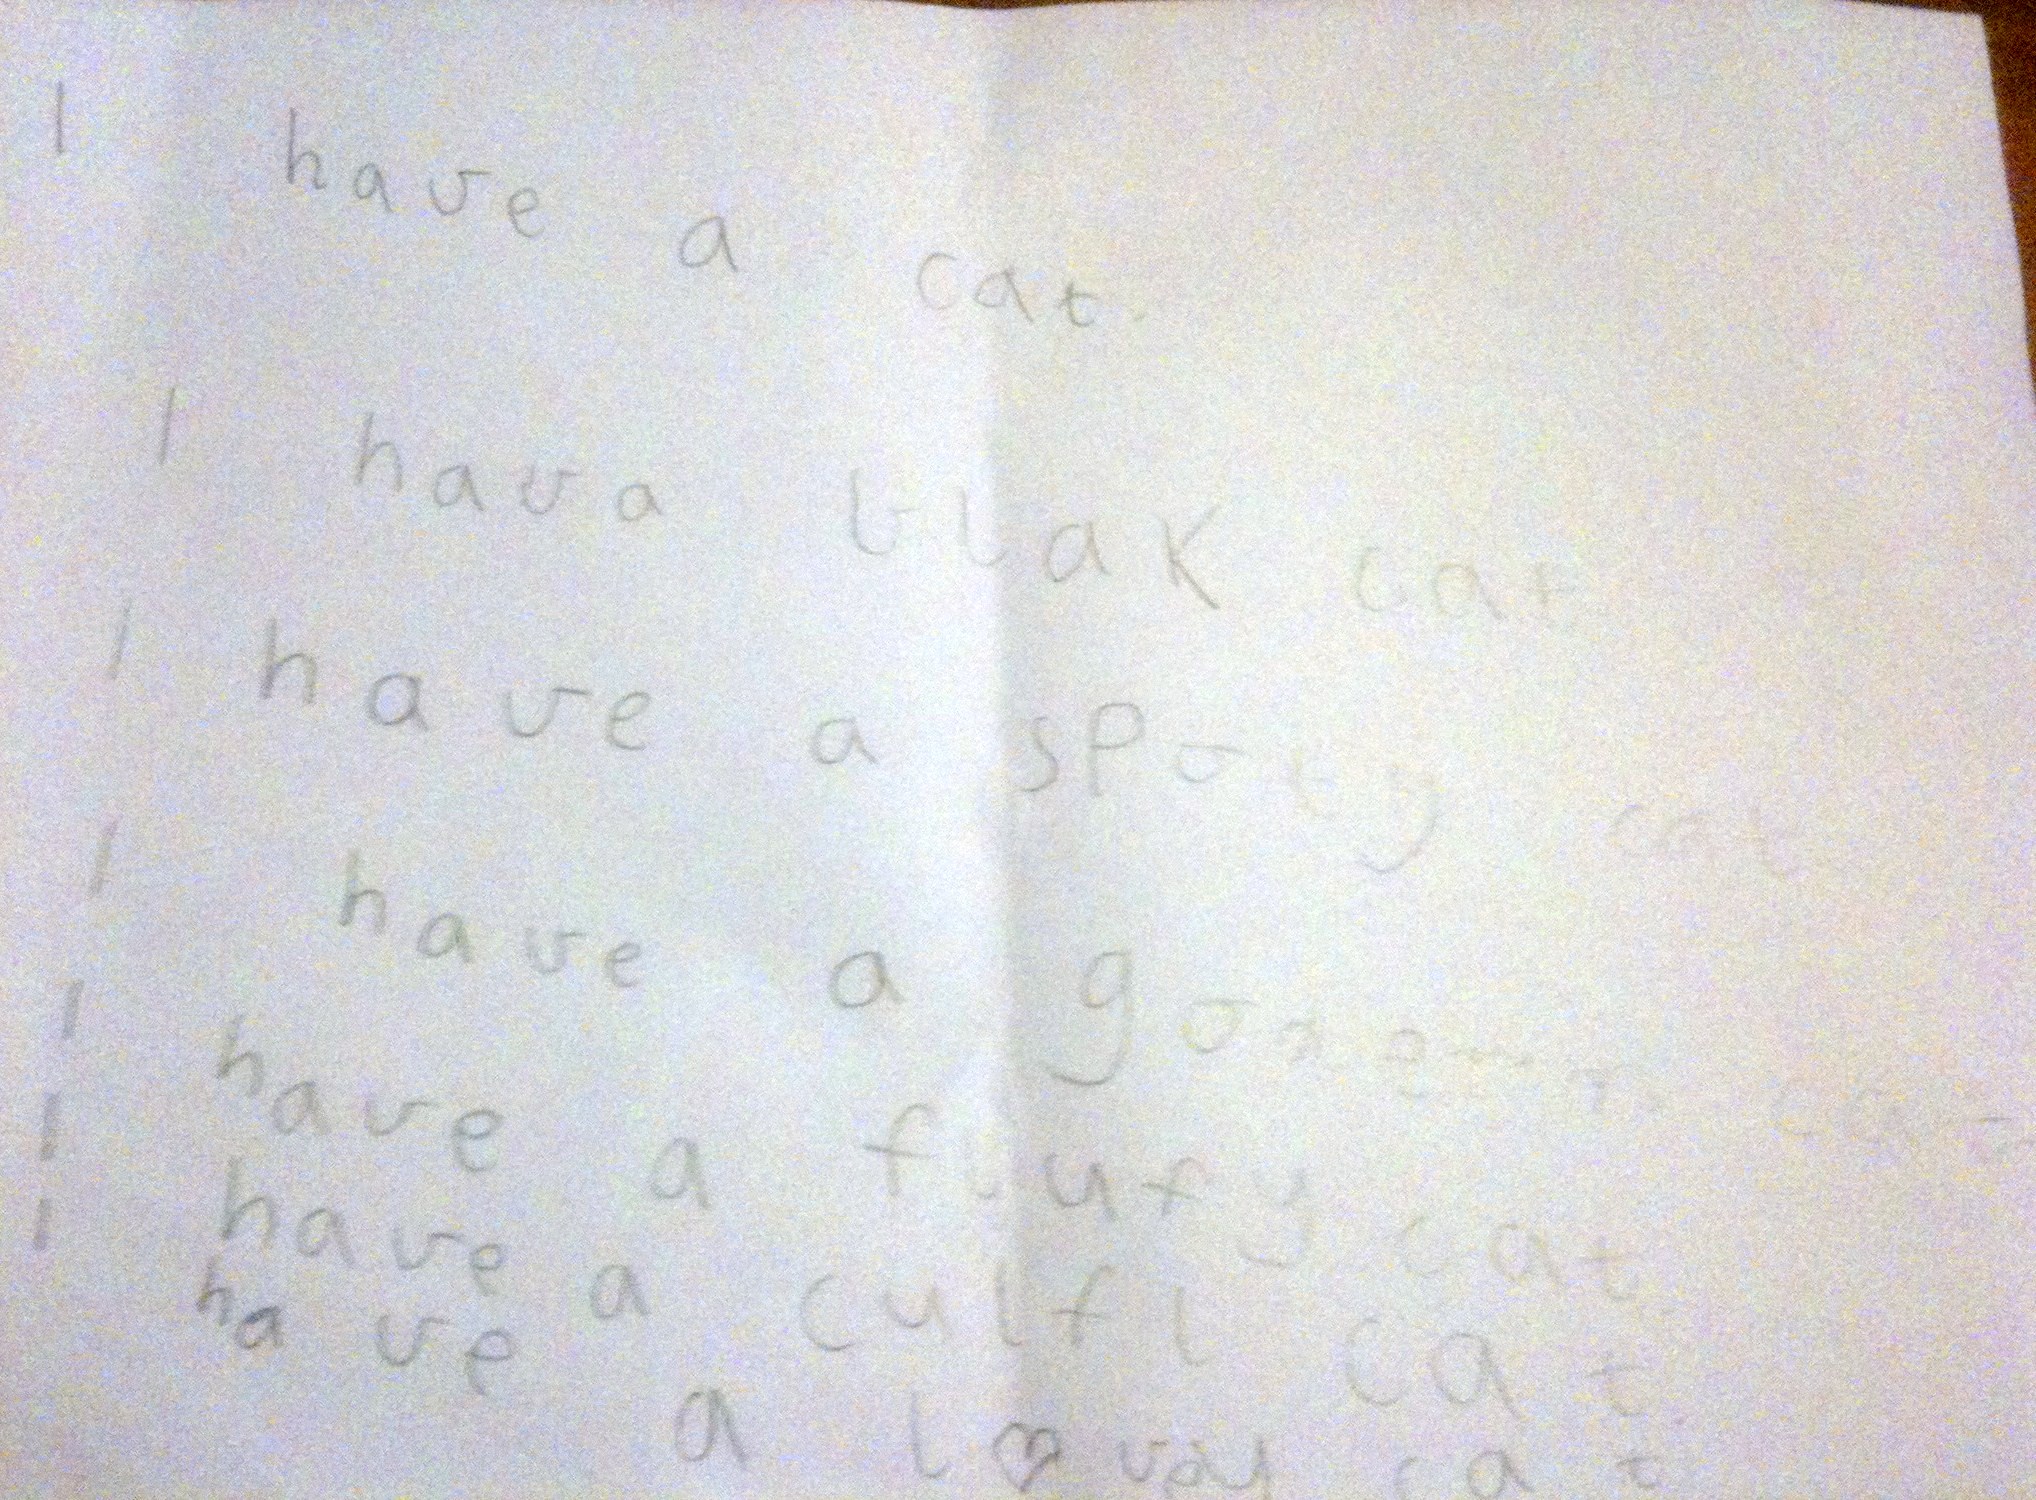 I have a cat.
I hava blak cat
I have a spoty cat
I have a cat
I have a flufy cat
I have a culfl cat
I have a cat